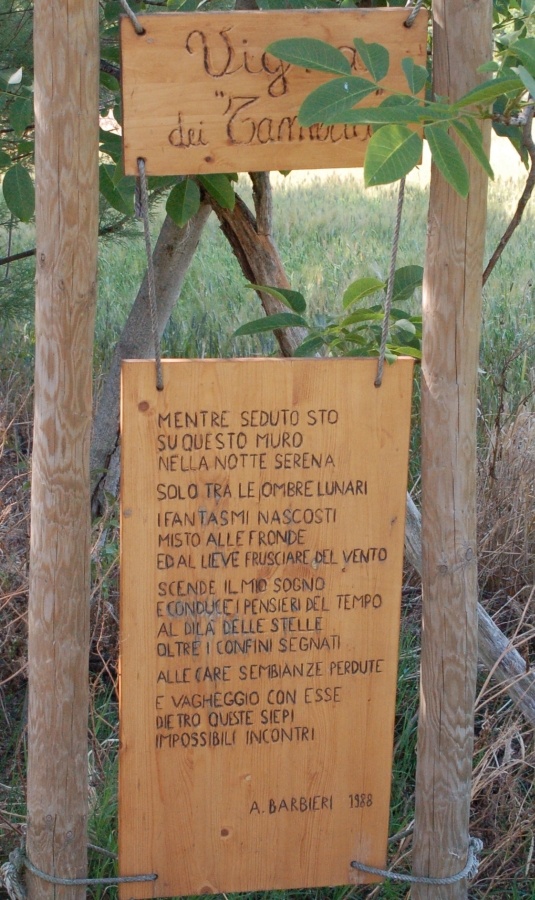 Vigna
dei "Tamburi"
MENTRE SEDUTO STO
SU QUESTO MURO
NELLA NOTTE SERENA
SOLO TRA LE OMBRE LUNARI
I FANTASMI NASCOSTI
MISTO ALLE FRONDE
ED AL LIEVE FRUSCIARE DEL VENTO
SCENDE IL MIO SOGNO
E CONDUCE I PENSIERI DEL TEMPO
AL DI LÀ DELLE STELLE
OLTRE I CONFINI SEGNATI
ALLE CARE SEMBIANZE PERDUTE
E VAGHEGGIO CON ESSE
DIETRO QUESTE SIEPI
IMPOSSIBILI INCONTRI
A. BARBIERI 1988